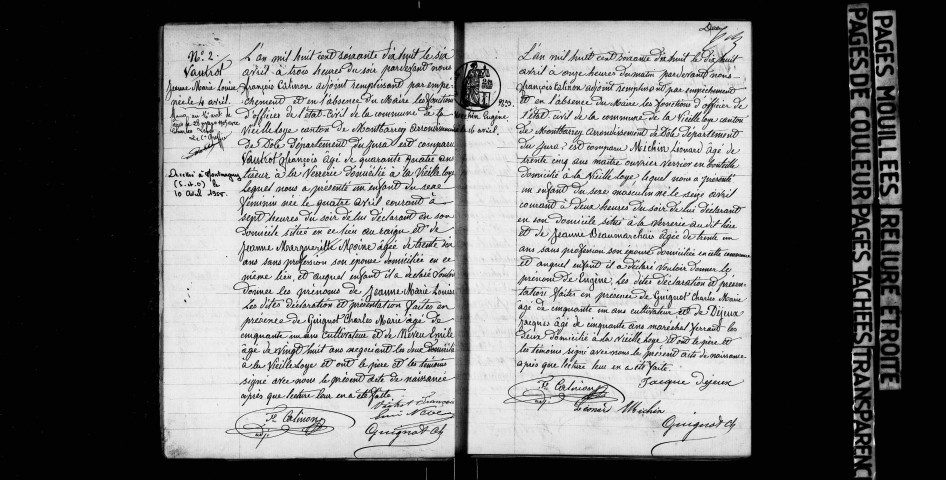 N° 2
Vautrot
Jeanne Marie Louise
née le 4 avril.
L'an mil huit cent soixante dix huit le six
avril à trois heures du soir par devant nous
françois Calinon adjoint remplissant par empê-
chement et en l'absence du Maire les fonctions
d'officier de l'état-civil de la commune de la
Vieille Loye canton de Montbarrey arrondissement
de Dole Département du Jura est comparu
Vautrot françois âgé de quarante quatre ans
tiseur à la Verrerie domicilié à la Vieille Loye
lequel nous a présenté un enfant du sexe
féminin née le quatre avril courant à
sept heures du soir de lui déclarant en son
domicile sitrée en ce lieu et de
Jeanne Marguerite Moine âgée de trente six
ans sans profession son épouse domiciliée en ce
même lieu, et auquel enfant il a déclaré vouloir
donner les prénoms de Jeanne Marie Louise
Les dites déclaration et présentation faites en
présence de Guignot Charles Marie âgé de
cinquante un ans cultivateur et de Neveu Emile
âgé de vingt huit ans négociant les deux domiciliés
à la Vieille Loye et ont le père et les témoins
signé avec nous le présent acte de naissance
après que lecture leur en a été faite
Décédée à Montmagny
(S.-et-O) le
10 Août 1955.
fs Calinon
adj.
Guignot Ch
Deux
Michin Eugène.
16 avril.
L'an mil huit cent soixante dix huit le dix huit
avril à onze heures du matin par devant nous
françois Calinon adjoint remplissant par empêchement
et en l'absence du Maire les fonctions d'officier de
l'état civil de la commune de la Vieille Loye canton
de Montbarrey arrondissement de Dole département
du Jura est comparu Michin Léonard âgé de
trente cinq ans maître ouvrier verrier en bouteille
domicilié à la Vieille Loye lequel nous a présenté
un enfant du sexe masculin né le seize avril
courant à deux heures du soir de lui déclarant
en son domicile sitrée à la Verrerie au dit lieu
et de Jeanne Beaumarchais âgée de trente un
ans sans profession son épouse domiciliée en cette commune
et auquel enfant il a déclaré vouloir donner le
prénom de Eugène. Les dites déclaration et présen-
tation faites en présence de Guignot Charles Marie
âgé de cinquante un ans cultivateur et de Dejeux
Jacques âgé de cinquante ans maréchal ferrant les
deux domiciliés à la Vieille Loye et ont le père et
les témoins signé avec nous le présent acte de naissance
après que lecture leur en a été faite.
Jacque Dejeux
fs Calinon
adj.
Léonard Michin
Guignot Ch
PAGES MOUILLEES RELIURE ETROITE
PAGES DE COULEUR PAGES TACHEES TRANSPARENC